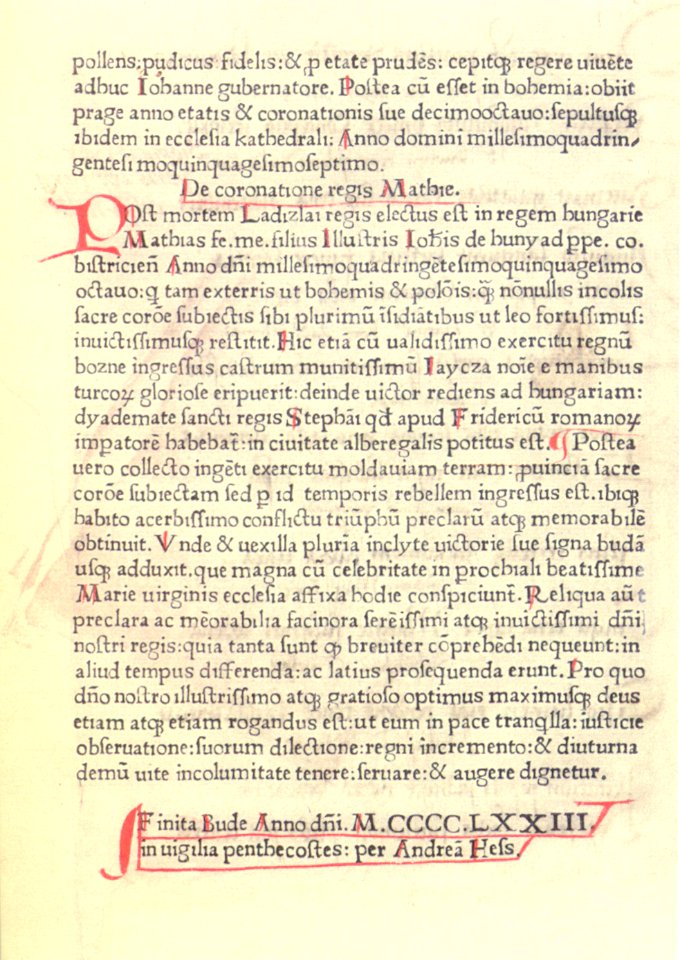 pollens: pudicus fidelis: & ꝓ etate prudẽs: cepitqꝫ regere uiuẽte
adhuc Iohanne gubernatore. Postea cũ esset in bohemia: obiit
prage anno etatis & coronationis sue decimooctauo: sepultusqꝫ
ibidem in ecclesia kathedrali: Anno domini millesimoquadrin⸗
gentesi moquinquagesimoseptimo.
De coronatione regis Mathie.
POst mortem Ladizlai regis electus est in regem hungarie
Mathias fe. me. filius Illustris Ioħis de hunyad ppe. co.
bistricieñ Anno dñi millesimoquadringẽtesimoquinquagesimo
octauo: q̇ tam exterris ut bohemis & polõis: qꝫ̃ nõnullis incolis
sacre corõe subiectis sibi plurimũ ĩsidiãtibus ut leo fortissimus:
inuictissimusqꝫ restitit. Hic etiã cũ ualidissimo exercitu regnũ
bozne ingressus castrum munitissimũ Iaycza noĩe e manibus
turcoꝝ gloriose eripuerit: deinde uictor rediens ad hungariam:
dyademate sancti regis Stephãi qđ apud Fridericũ romanoꝝ
impatorẽ habebat̃: in ciuitate alberegalis potitus est. ¶ Postea
uero collecto ingẽti exercitu moldauiam terram: ꝓuinciã sacre
corõe subiectam sed ꝑ id temporis rebellem ingressus est. ibiqꝫ
habito acerbissimo conflictu triũphũ preclarũ atqꝫ memorabilẽ
obtinuit. Vnde & uexilla pluria inclyte uictorie sue signa budã
usqꝫ adduxit. que magna cũ celebritate in ꝑochiali beatissime
Marie uirginis ecclesia affixa hodie conspiciunt̃. Reliqua aũt
preclara ac mẽorabilia facinora serẽissimi atqꝫ inuictissimi dñi
nostri regis: quia tanta sunt qꝫ breuiter cõprehẽdi nequeunt: in
aliud tempus differenda: ac latius prosequenda erunt. Pro quo
dño nostro illustrissimo atqꝫ gratioso optimus maximusqꝫ deus
etiam atqꝫ etiam rogandus est: ut eum in pace tranq̇lla: iusticie
obseruatione: suorum dilectione: regni incremento: & diuturna
demũ uite incolumitate tenere: seruare: & augere dignetur.
Finita Bude Anno dñi. M.CCCC.LXXIII.
in uigilia penthecostes: per Andreã Hess.